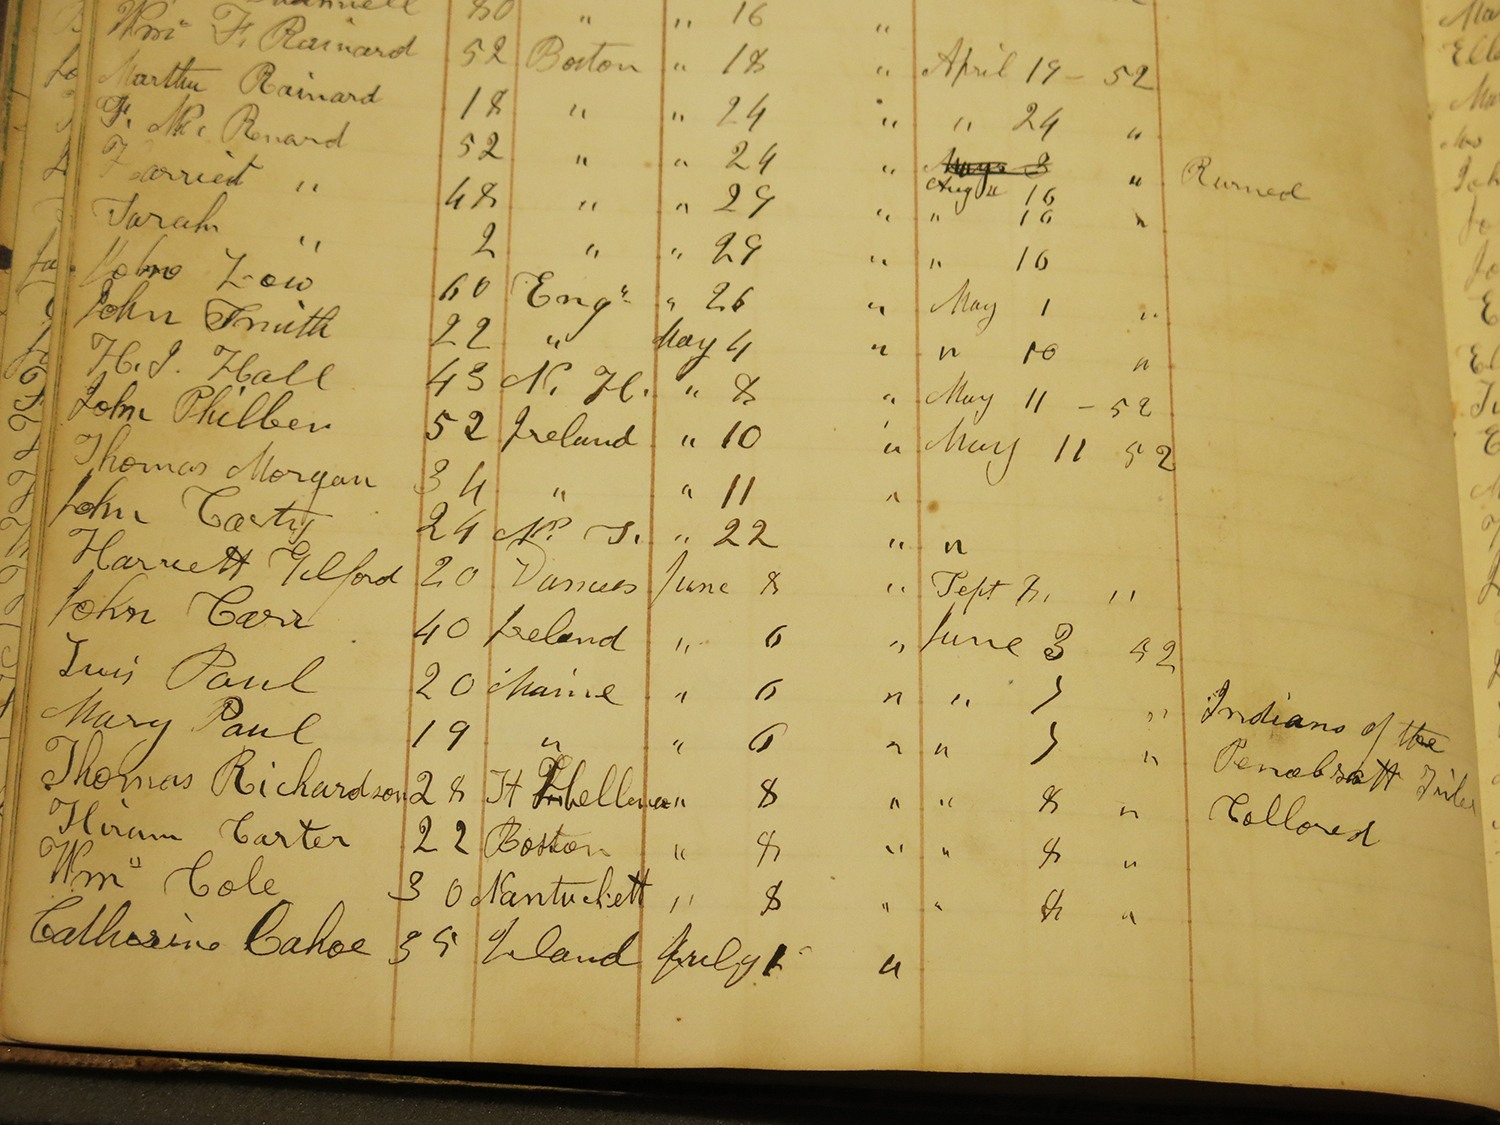 80 " " 16 "
Wm F. Rainard 52 Boston " 18 " April 19 - 52
Martha Rainard 18 " " 24 " " 24 "
F. Renard 52 " " 24 " "
Harriet " 48 " " 29 " Aug " 16 " Runed
Sarah " 2 " " 29 " " 16 "
John Low 60 Eng " 26 " " 16
John Smith 22 " May 4 " May 1 "
H. J. Hall 43 N. H. " 8 " " 10 "
John Philben 52 Ireland " 10 " May 11 - 52
Thomas Morgan 34 " " 11 " May 11 52
John Carty 24 " 22 "
Harriett Gilford 20 June 8 " Sept 8, "
John Carr 40 Ireland " 6 " June 3 52
Paul 20 Maine " 6 " " 7 " Indians of the
Mary Paul 19 " " 6 " " 7 " Tribe
Thomas Richardson 28 St " 8 " " 8 " Collored
Hiram Carter 22 Boston " 8 " " 8 "
Wm Cole 30 Nantuckett " 8 " " 8 "
Catherine Cahoe 35 Ireland July 1 "